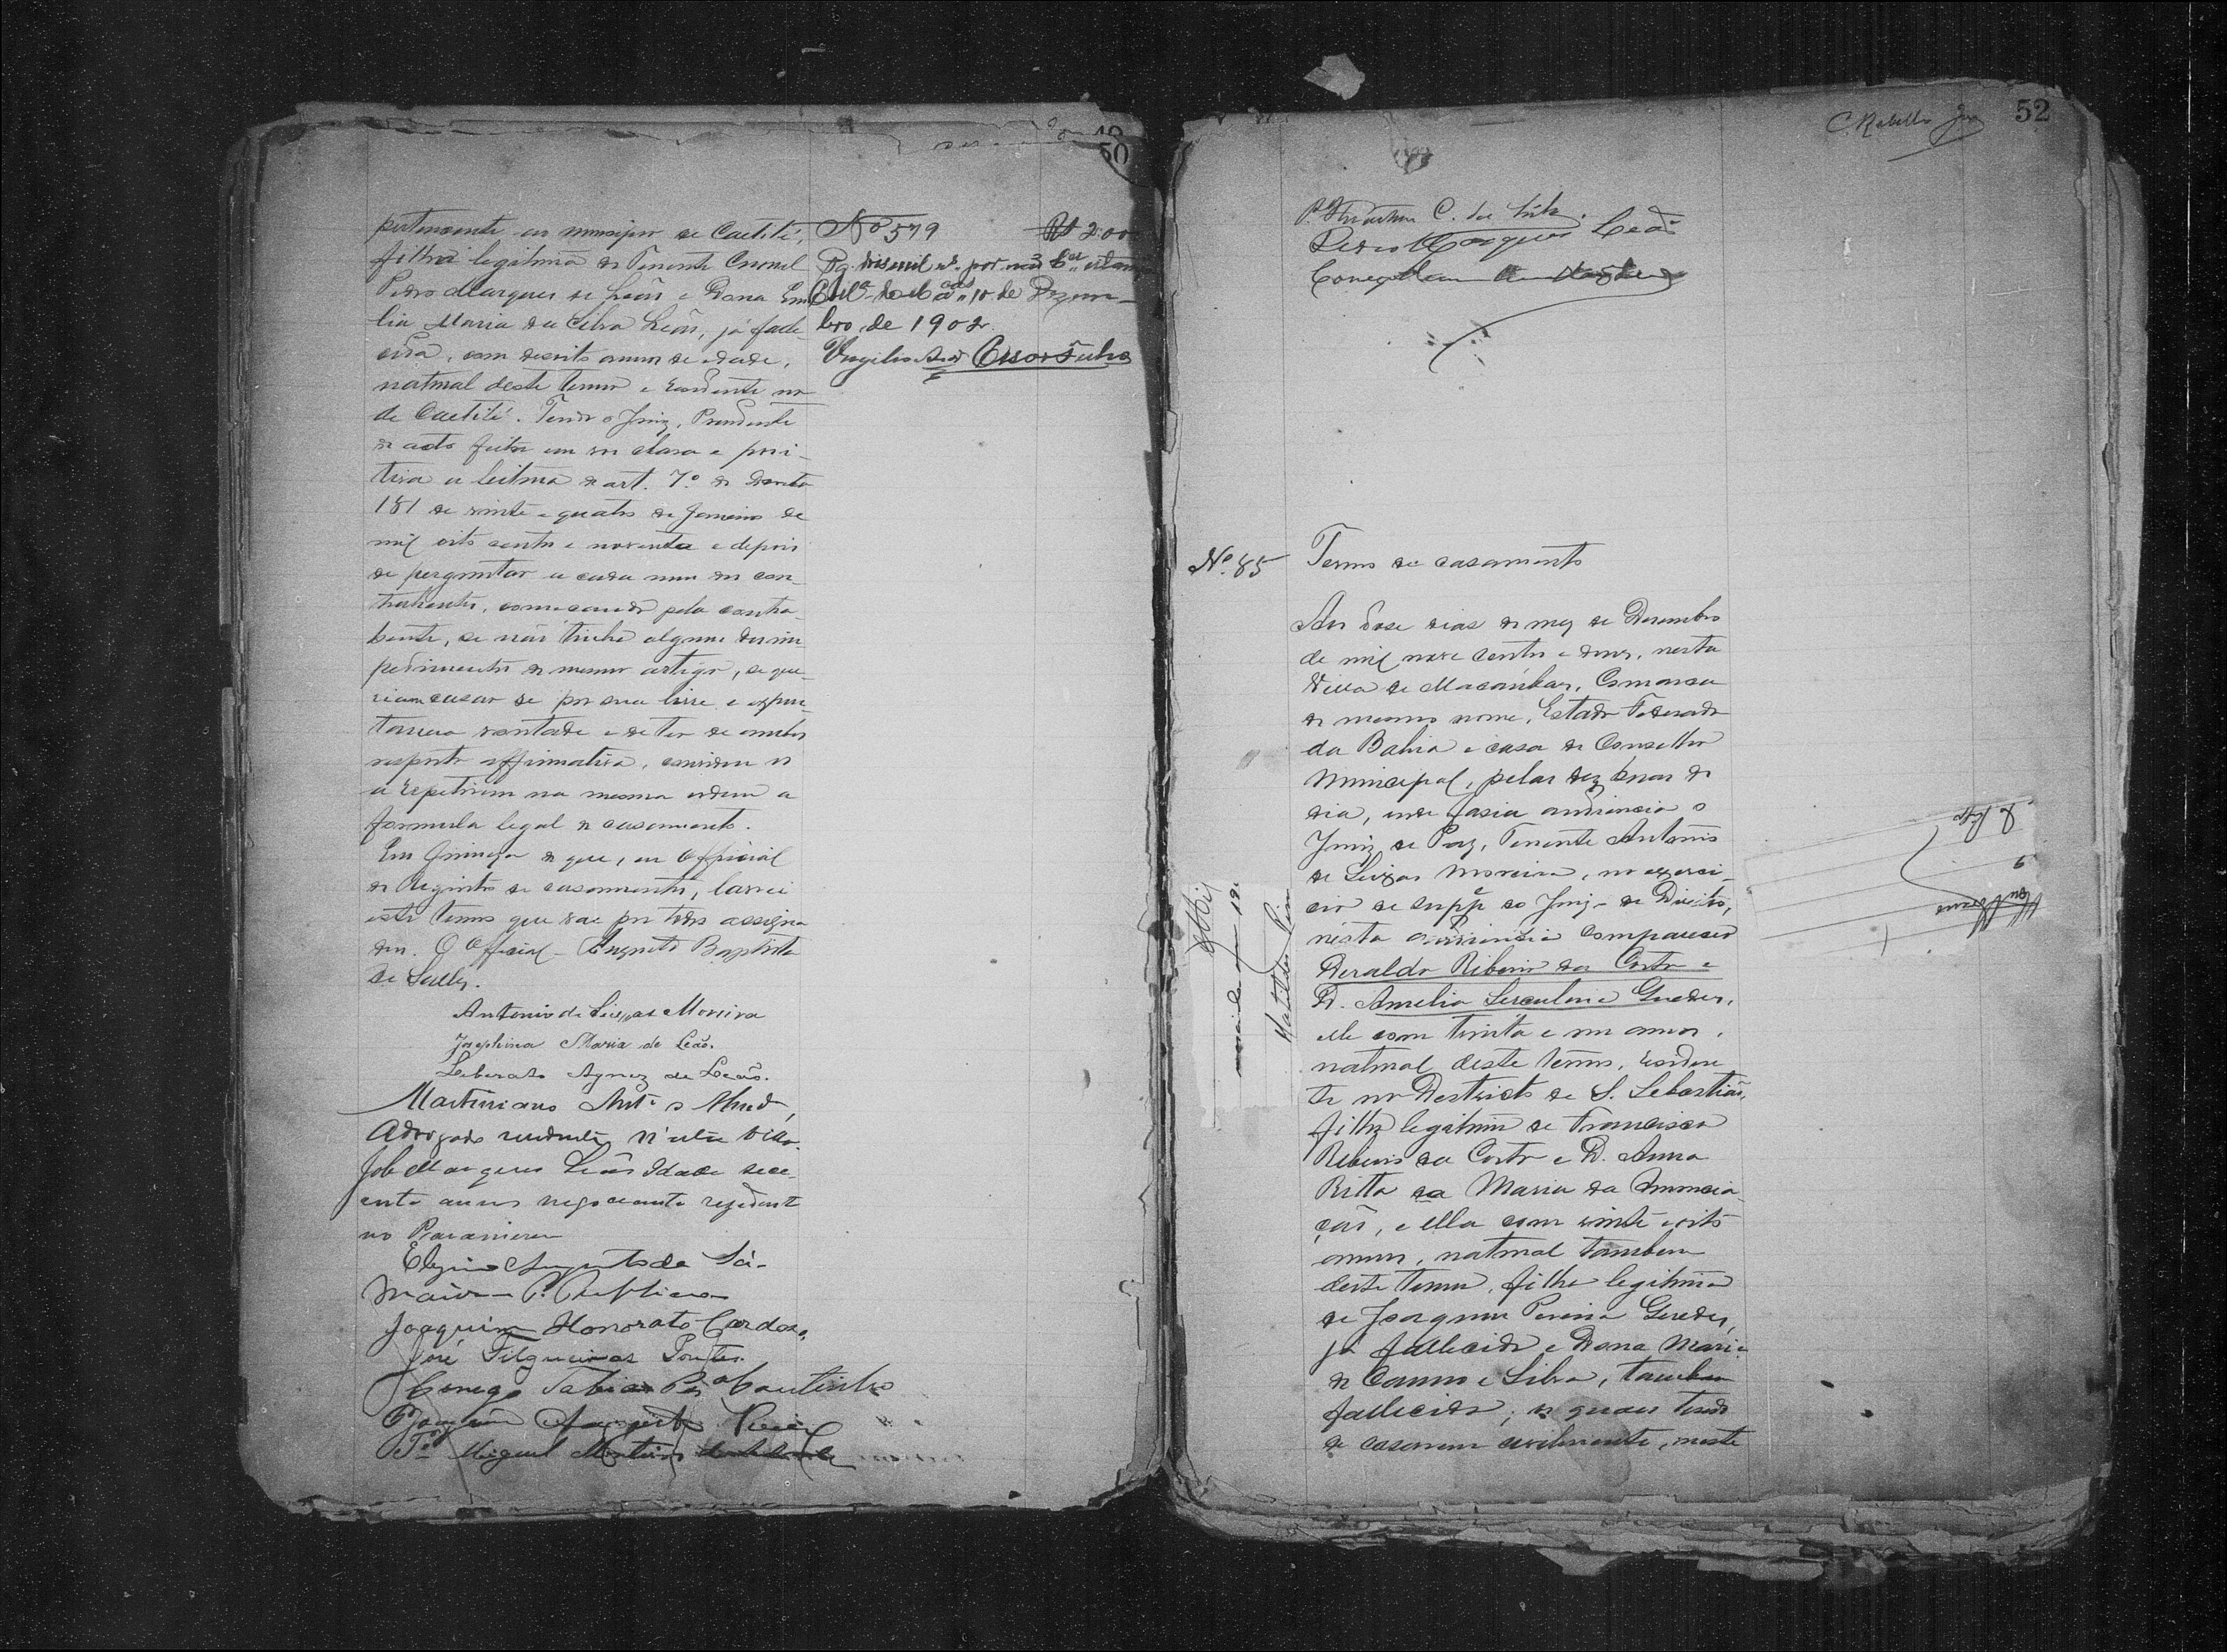 50
pertencente ao municipio de Caetité,
filha legitima do Tenente Coronel
Pedro Marques de Leão e Dona Emi
lia Maria da Silva Leão, já falle
cida, com desoito annos de edade,
natural deste termo e residente no
de Caetité. Tendo o Juiz, Presidente
do acto feito em voz clara e posi-
tiva a leitura do art. 7º do Decreto
181 de vinte e quatro de Janeiro de
mil oito centos e noventa e depois
de perguntar a cada um dos con-
trahentes, começando pela contra-
hente, se não tinha algum dos im-
pedimentos do mesmo artigo, se que-
riam casar se por sua livre e expon-
tanea vontade e de ter de ambos
resposta affirmativa, convidou os
a repetirem na mesma ordem a
formula legal do casamento.
Em firmeza do que, eu Official
do Registro de casamentos, lavrei
este termo que vae por todos assigna
do. O Official - Augusto Baptista
de Salles.
Antonio de Seixas Moreira
Josephina Maria de Leão.
Liberato Agnez de Leão.
Martiniano Antº o Almdª,
Advogado residente n'esta villa
Job Marques Leão Idade sece-
enta annos negociante rezidente
no Paramirim
Elyzio Augusto de Sá-
Joaquim Honorato Cardozo
José Filgueiras Pontes
Conego Tobias Pª Coutinho
Joaquim Augusto
Miguel
No 579 Rs 200
Pg. dois mil rs. por
10 de Dezem-
bro de 1902
Virgilio Cesar Filho
C. Rebello Jor
52
C. da Silva
Pedro Marques Leão
No. 85
Termo de casamento
Aos dose dias do mez de Desembro
de mil nove centos e dous, nesta
Villa de Macaúbas, Comarca
do mesmo nome, Estado Federado
da Bahia e casa do Conselho
Municipal, pelas dez horas do
dia, onde fasia audiencia o
Juiz de Paz, Tenente Antonio
de Seixas Moreira, no exerci-
cio de suppe do Juiz de Direito,
nesta audiencia compareceo
Deraldo Ribeiro da Costa e
D. Amelia Herculina Guedes,
elle com trinta e um annos,
natural deste termo, residen
te no Destricto de S. Sebastião,
filho legitimo de Francisco
Ribeiro da Costa e D. Anna
Ritta da Maria da Annuncia-
ção, e ella com vinte e oito
annos, natural tambem
deste termo, filha legitima
de Joaquim Pereira Guedes,
já fallecido e Dona Maria
do Carmo e Silva, tambem
fallecida; os quaes tendo
de casarem civilmente, neste